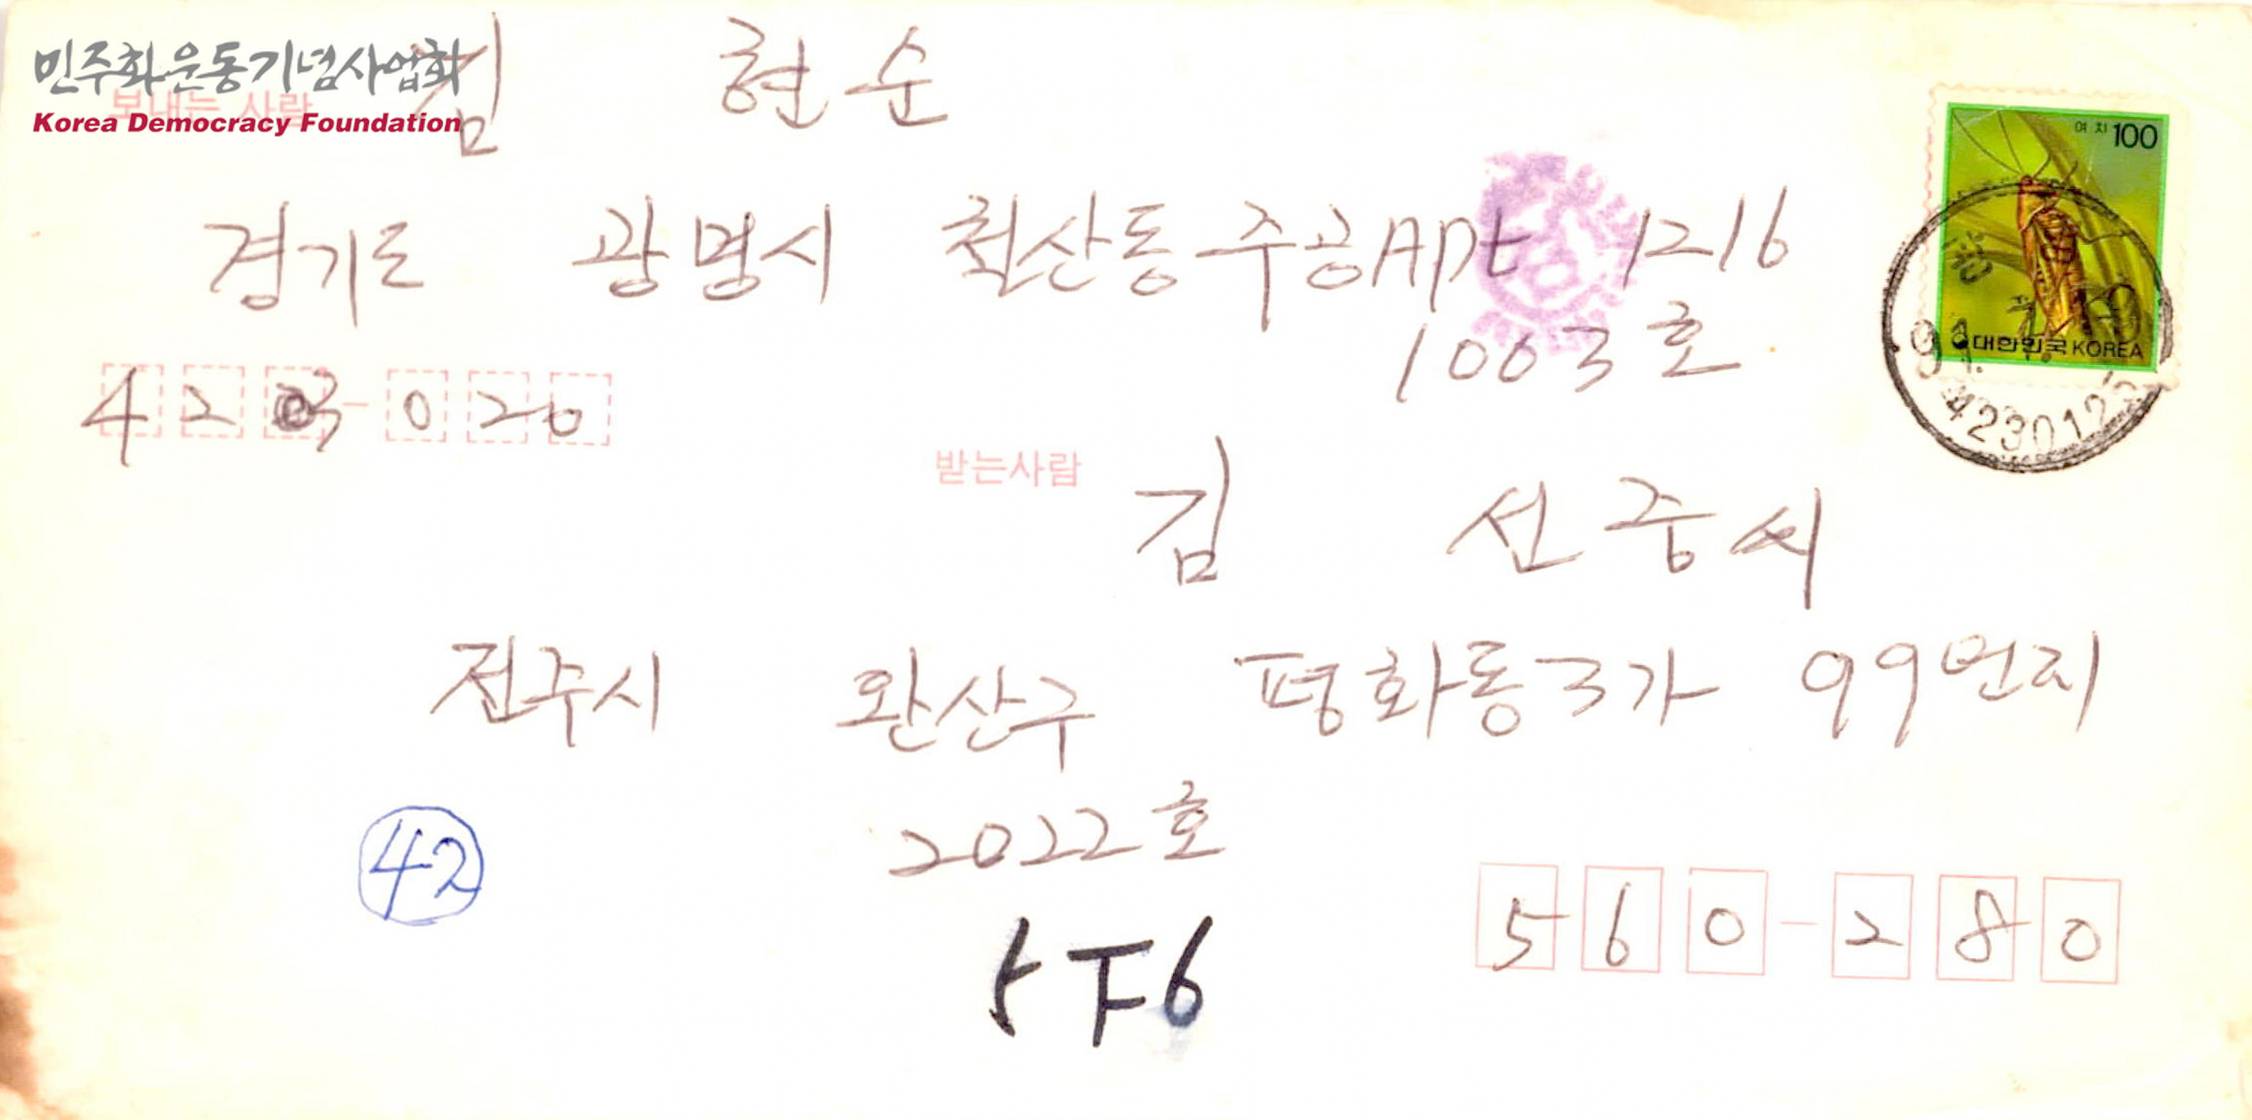 민주화운동기념사업회
Korea Democracy Foundation
보내는 사람
김 현순
경기도 광명시 철산동 주공APt 1216
1003호
423-020
여치 100
대한민국 KOREA
91.
4230123
받는사람
김 선중씨
전주시 완산구 평화동3가 99번지
2022호
42
560-280